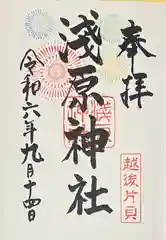 奉拝
越後片貝
淺原神社
令和六年九月十四日